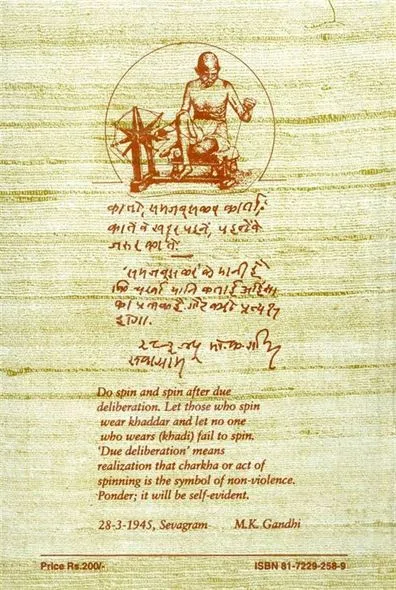 कातो, समजबूझकर कातो;
कातें वे खद्दर पहनें, पहनें वे
जरूर कातें.
'समजबूझकर' के मानी हैं
कि चरखा यानि कताई अहिंसा
का प्रतीक है. गौर करो प्रत्यक्ष
होगा.
मो.क.गांधी
सेवाग्राम
Do spin and spin after due
deliberation. Let those who spin
wear khaddar and let no one
who wears (khadi) fail to spin.
'Due deliberation' means
realization that charkha or act of
spinning is the symbol of non-violence.
Ponder; it will be self-evident.
28-3-1945, Sevagram M.K. Gandhi
Price Rs.200/- ISBN 81-7229-258-9